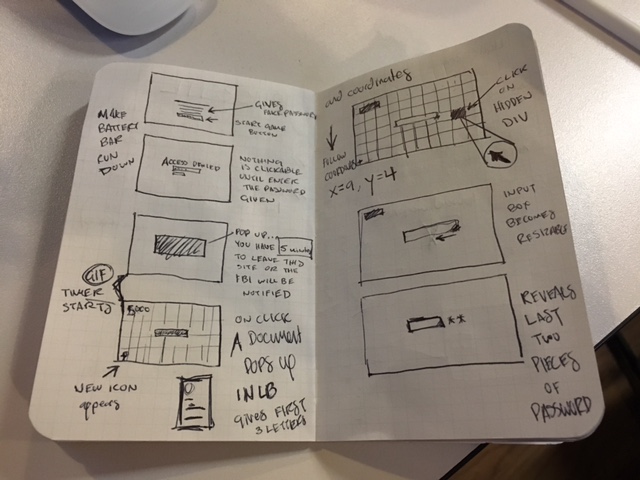 BATTERY
BAR
RUN
DOWN
GIVES
START GAME
BUTTON
ACCESS DENIED
NOTHING
IS CLICKABLE
UNTIL ENTER
THE PASSWORD
GIVEN
GIF
TIMER
STARTS
POP UP..
YOU HAVE
TO LEAVE THIS
SITE OR THE
FBI WILL BE
NOTIFIED
NEW ICON
appears
ON CLICK
A DOCUMENT
POPS UP
IN LB
GIVES FIRST
3 LETTERS
add coordinates
CLICK
ON
HIDDEN
DIV
FOLLOW
X=9, Y=4
INPUT
BOX
BECOMES
RESIZABLE
**
REVEALS
LAST
TWO
PIECES
OF
PASSWORD